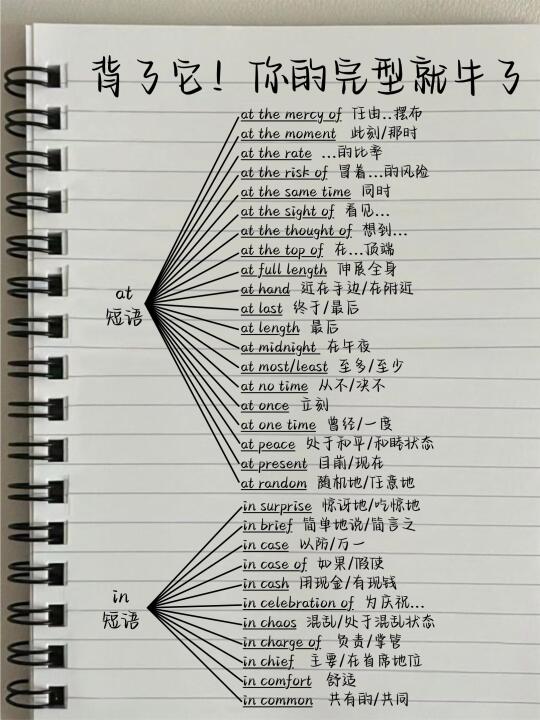 背了它！你的完型就牛了
at the mercy of 任由..摆布
at the moment 此刻/那时
at the rate ...的比率
at the risk of 冒着...的风险
at the same time 同时
at the sight of 看见...
at the thought of 想到...
at the top of 在...顶端
at full length 伸展全身
at hand 近在手边/在附近
at last 终于/最后
at length 最后
at midnight 在午夜
at most/least 至多/至少
at no time 从不/决不
at once 立刻
at one time 曾经/一度
at peace 处于和平/和睦状态
at present 目前/现在
at random 随机地/任意地
at
短语
in surprise 惊讶地/吃惊地
in brief 简单地说/简言之
in case 以防/万一
in case of 如果/假使
in cash 用现金/有现钱
in celebration of 为庆祝...
in chaos 混乱/处于混乱状态
in charge of 负责/掌管
in chief 主要/在首席地位
in comfort 舒适
in common 共有的/共同
in
短语